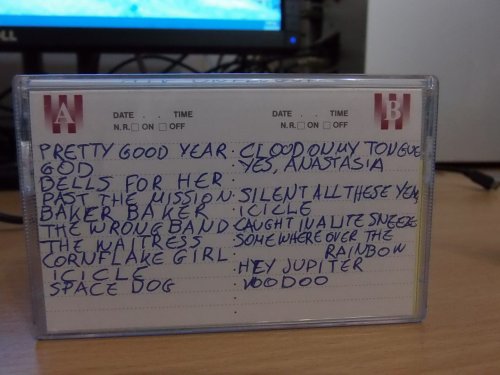 DELL
A
B
DATE . . TIME
N.R. ON OFF
DATE . . TIME
N.R. ON OFF
PRETTY GOOD YEAR
GOD
BELLS FOR HER
PAST THE MISSION
BAKER BAKER
THE WRONG BAND
THE WAITRESS
CORNFLAKE GIRL
ICICLE
SPACE DOG
CLOUD ON MY TONGUE
YES, ANASTASIA
SILENT ALL THESE YEA
ICICLE
CAUGHT IN A LITE SNEEZE
SOMEWHERE OVER THE
RAINBOW
HEY JUPITER
VOODOO